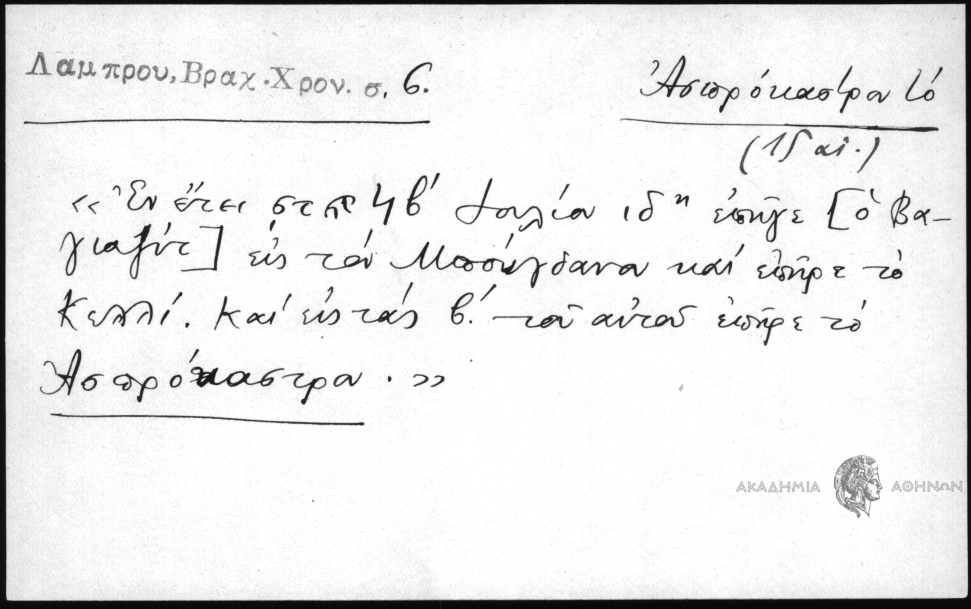 Λαμπρου, Βραχ. Χρον. σ. 6.
Ἀσπρόκαστρον τό
(15 αἰ.)
«Ἐν ἔτει ϛϡϟβʹ Ἰουλίου ιδῃ ἐπῆγε [ὁ Βα-
γιαζίτ] εἰς τὸν Μπόγδανον καὶ ἐπῆρε τὸ
Κελλί. Καὶ εἰς τὰς β΄. τοῦ αὐτοῦ ἐπῆρε τὸ
Ἀσπρόκαστρον.»
ΑΚΑΔΗΜΙΑ ΑΘΗΝΩΝ